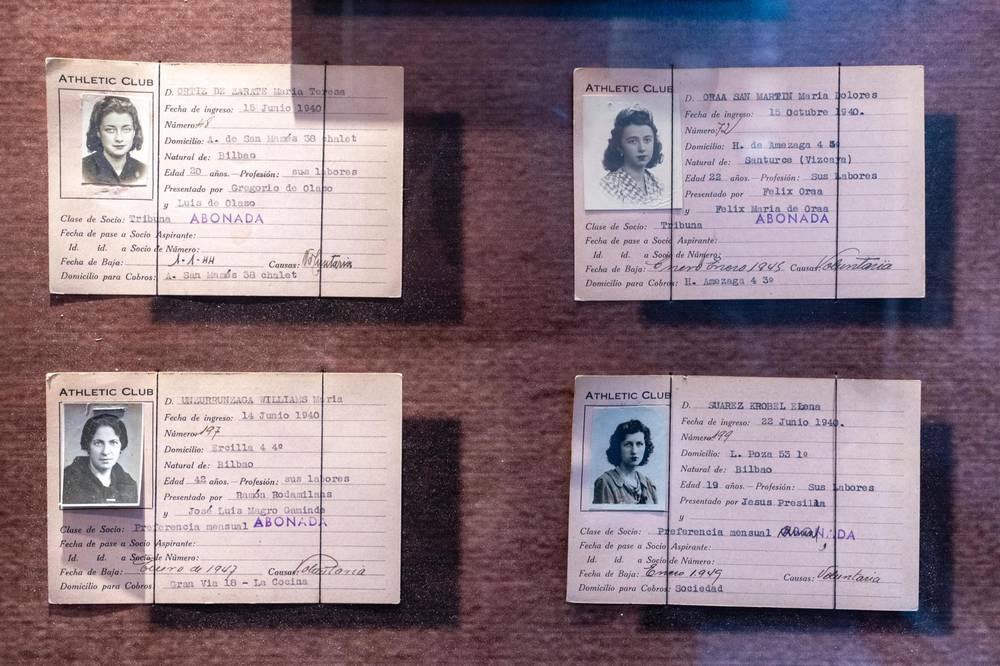 ATHLETIC CLUB
D. ORTIZ DE ZARATE Maria Teresa
Fecha de ingreso: 15 Junio 1940
Número: 48
Domicilio: A. de San Mamés 38 chalet
Natural de: Bilbao
Edad 20 años. — Profesión: sus labores
Presentado por Gregorio de Olaso
y Luis de Olaso
Clase de Socio: Tribuna ABONADA
Fecha de pase a Socio Aspirante:
Id. id. a Socio de Número:
Fecha de Baja: 1-1-44 Causas: Voluntaria
Domicilio para Cobros: A. San Mamés 38 chalet
ATHLETIC CLUB
D. ORAA SAN MARTIN Maria Dolores
Fecha de ingreso: 15 Octubre 1940.
Número: 72
Domicilio: H. de Amezaga 4 3º
Natural de: Santurce (Vizcaya)
Edad 22 años. — Profesión: Sus Labores
Presentado por Felix Oraa
y Felix Maria de Oraa
ABONADA
Clase de Socio: Tribuna
Fecha de pase a Socio Aspirante:
Id. id. a Socio de Número:
Fecha de Baja: Enero 1945 Causas: Voluntaria
Domicilio para Cobros: H. Amezaga 4 3º
ATHLETIC CLUB
D. UNZURRUNZAGA WILLIAMS Maria
Fecha de ingreso: 14 Junio 1940
Número: 197
Domicilio: Ercilla 4 4º
Natural de: Bilbao
Edad 42 años. — Profesión: sus labores
Presentado por Ramón Rodamilans
y José Luis Magro Gaminde
Clase de Socio: Preferencia mensual ABONADA
Fecha de pase a Socio Aspirante:
Id. id. a Socio de Número:
Fecha de Baja: Enero de 1947 Causas: Voluntaria
Domicilio para Cobros: Gran Via 18 - La Cocina
ATHLETIC CLUB
D. SUAREZ KROBEL Elena
Fecha de ingreso: 22 Junio 1940.
Número: 199
Domicilio: L. Poza 53 1º
Natural de: Bilbao
Edad 19 años. — Profesión: Sus Labores
Presentado por Jesus Presilla
y
Clase de Socio: Preferencia mensual ABONADA
Fecha de pase a Socio Aspirante:
Id. id. a Socio de Número:
Fecha de Baja: Enero 1949 Causas: Voluntaria
Domicilio para Cobros: Sociedad